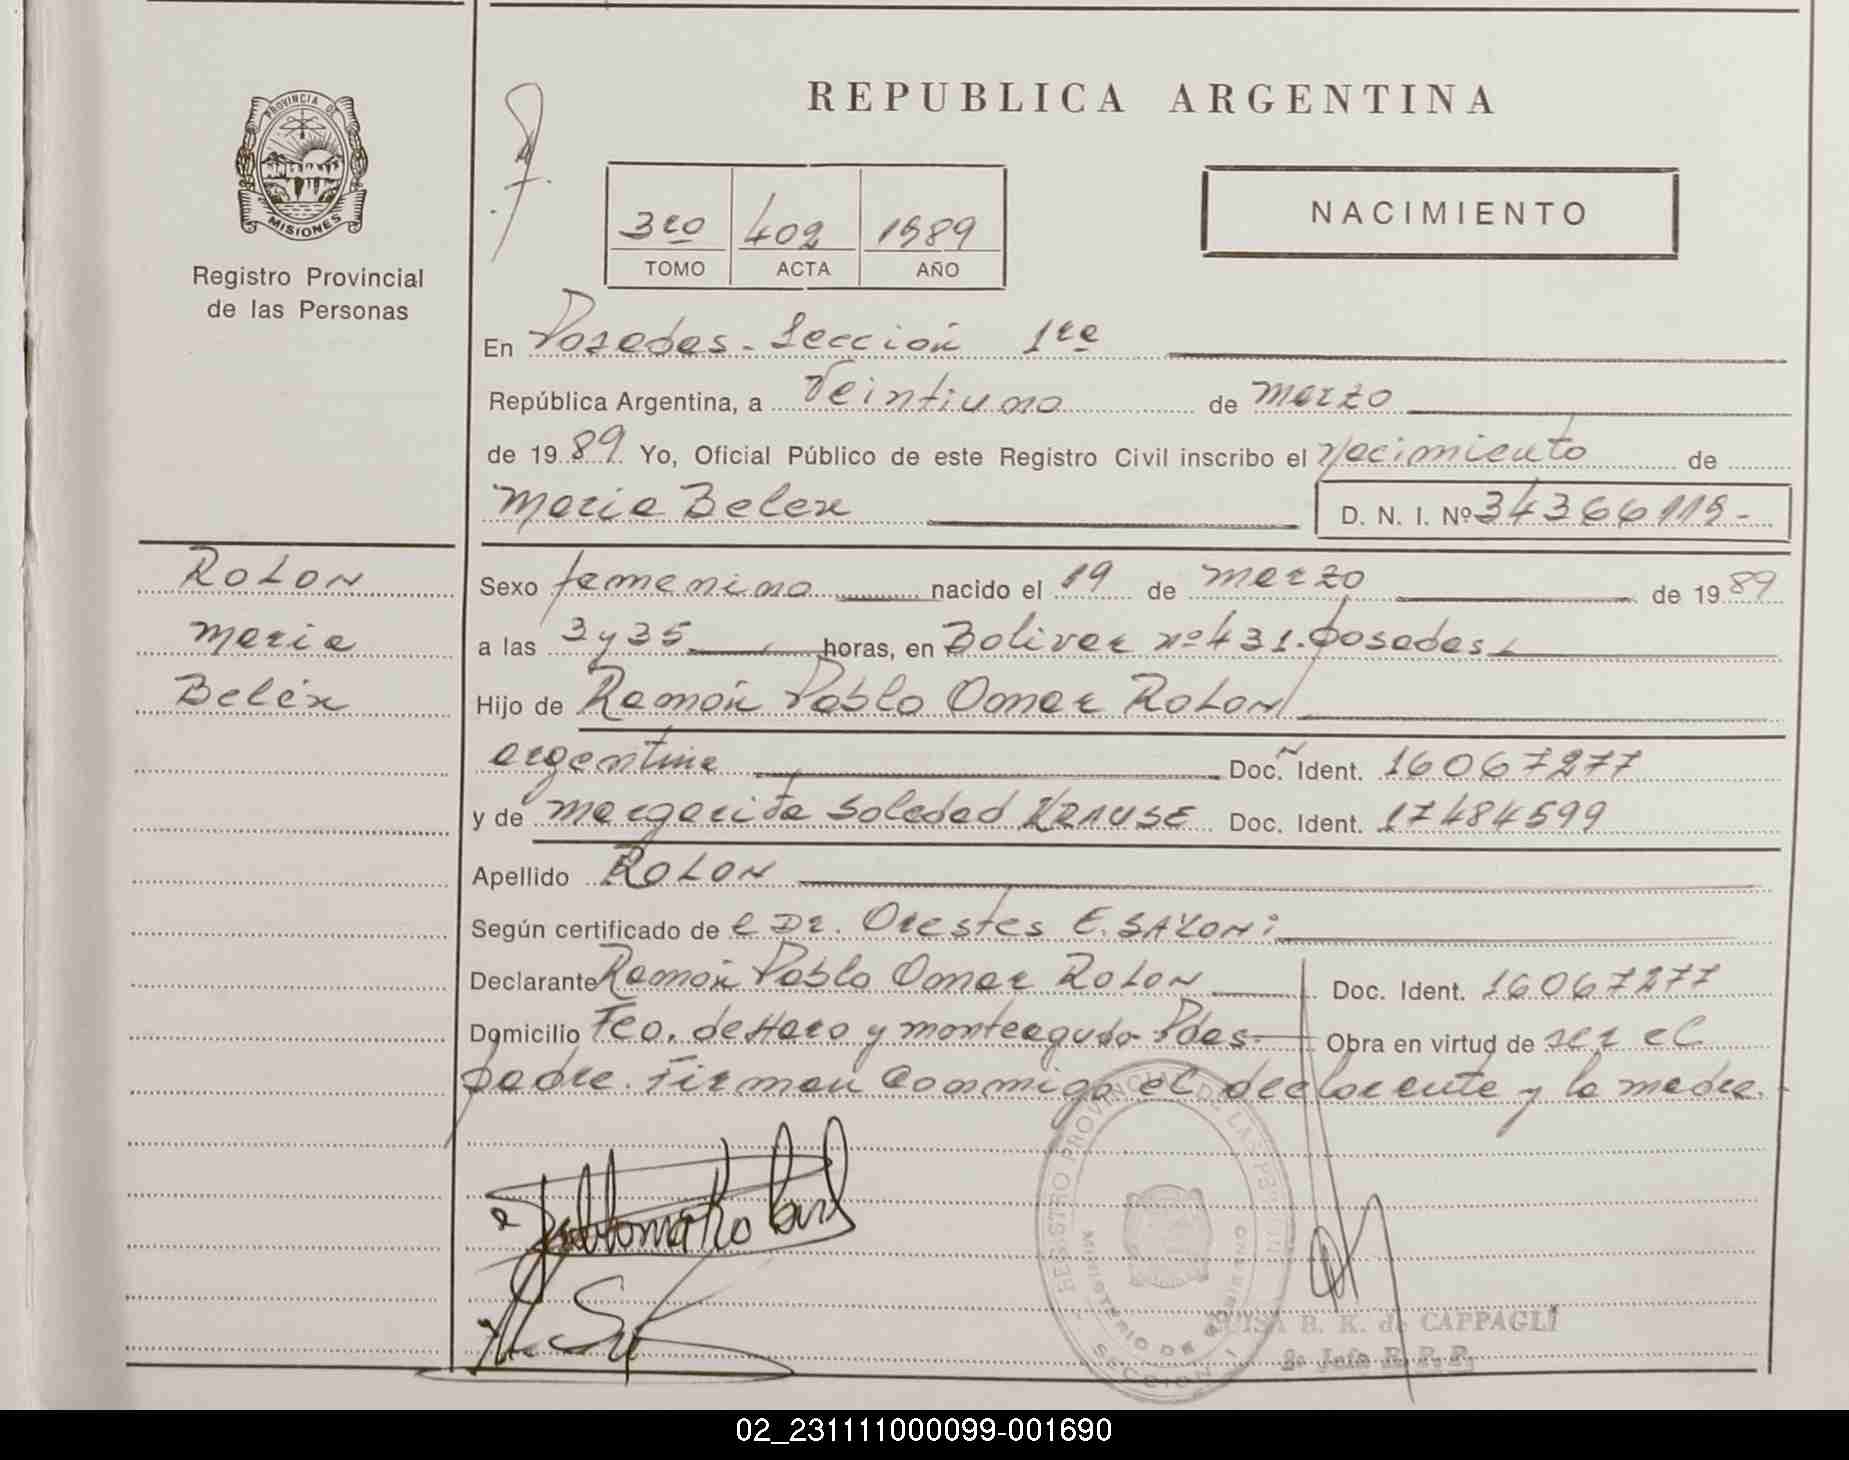 PROVINCIA DE
MISIONES
Registro Provincial
de las Personas
REPUBLICA ARGENTINA
3ro 402 1989
TOMO ACTA AÑO
NACIMIENTO
En Posadas - Sección 1ra
República Argentina, a Veintiuno de marzo
de 1989 Yo, Oficial Público de este Registro Civil inscribo el Nacimiento de
Maria Belen D. N. I. Nº 34366115-
Rolon
Maria
Belén
Sexo femenino nacido el 19 de marzo de 1989
a las 3 y 35 horas, en Bolivar nº 431. Posadas
Hijo de Ramón Pablo Omar Rolon
argentina Doc. Ident. 16067277
y de Margarita Soledad KRAUSE Doc. Ident. 17484599
Apellido ROLON
Según certificado de el Dr. Orestes E.
Declarante Ramón Pablo Omar Rolon Doc. Ident. 16067277
Domicilio Fco. de Haro y monteagudo - Pdas - Obra en virtud de ser el
padre. Firman conmigo el declarante y la madre.-
REGISTRO PROVINCIAL DE LAS PERSONAS
MINISTERIO DE GOBIERNO
SECCION I
LUISA B. K. de CAPPAGLI
2º Jefe R. P. P.
02_231111000099-001690